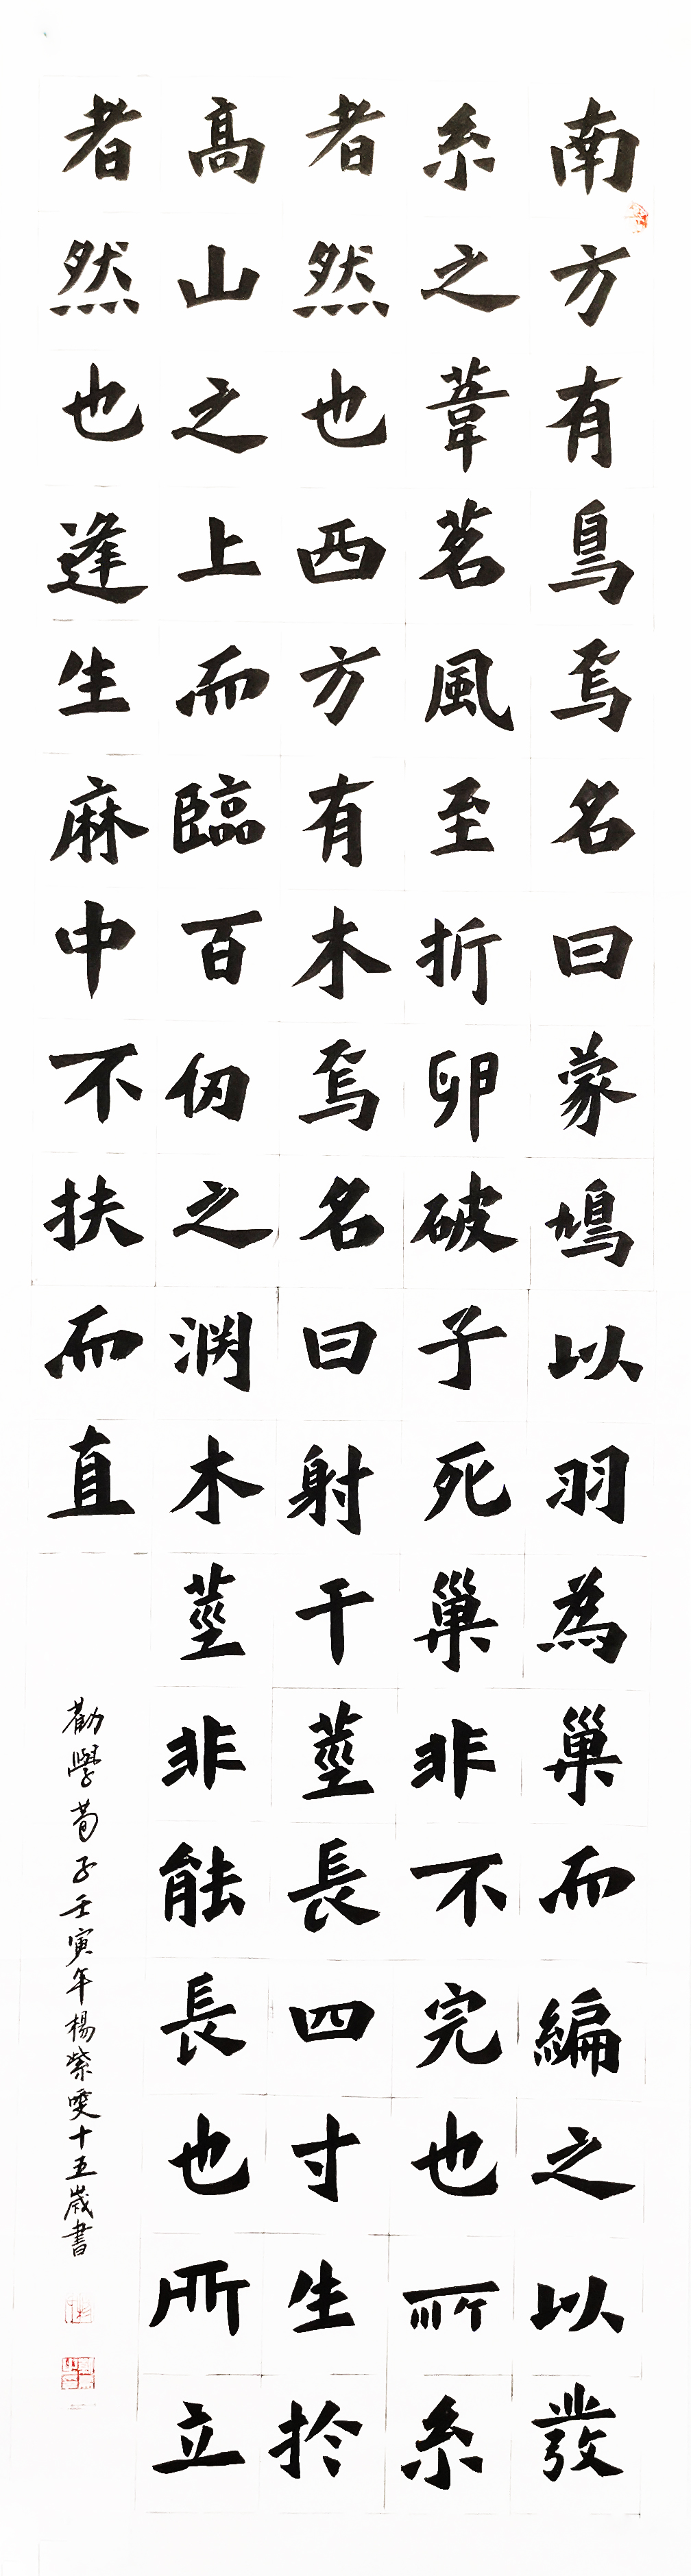 南方有鳥焉名曰蒙鳩以羽為巢而編之以發
系之葦茗風至折卵破子死巢非不完也所系
者然也西方有木焉名曰射干莖長四寸生於
高山之上而臨百仞之淵木莖非能長也所立
者然也逢生麻中不扶而直
勸學荀子壬寅年楊紫雯十五歲書